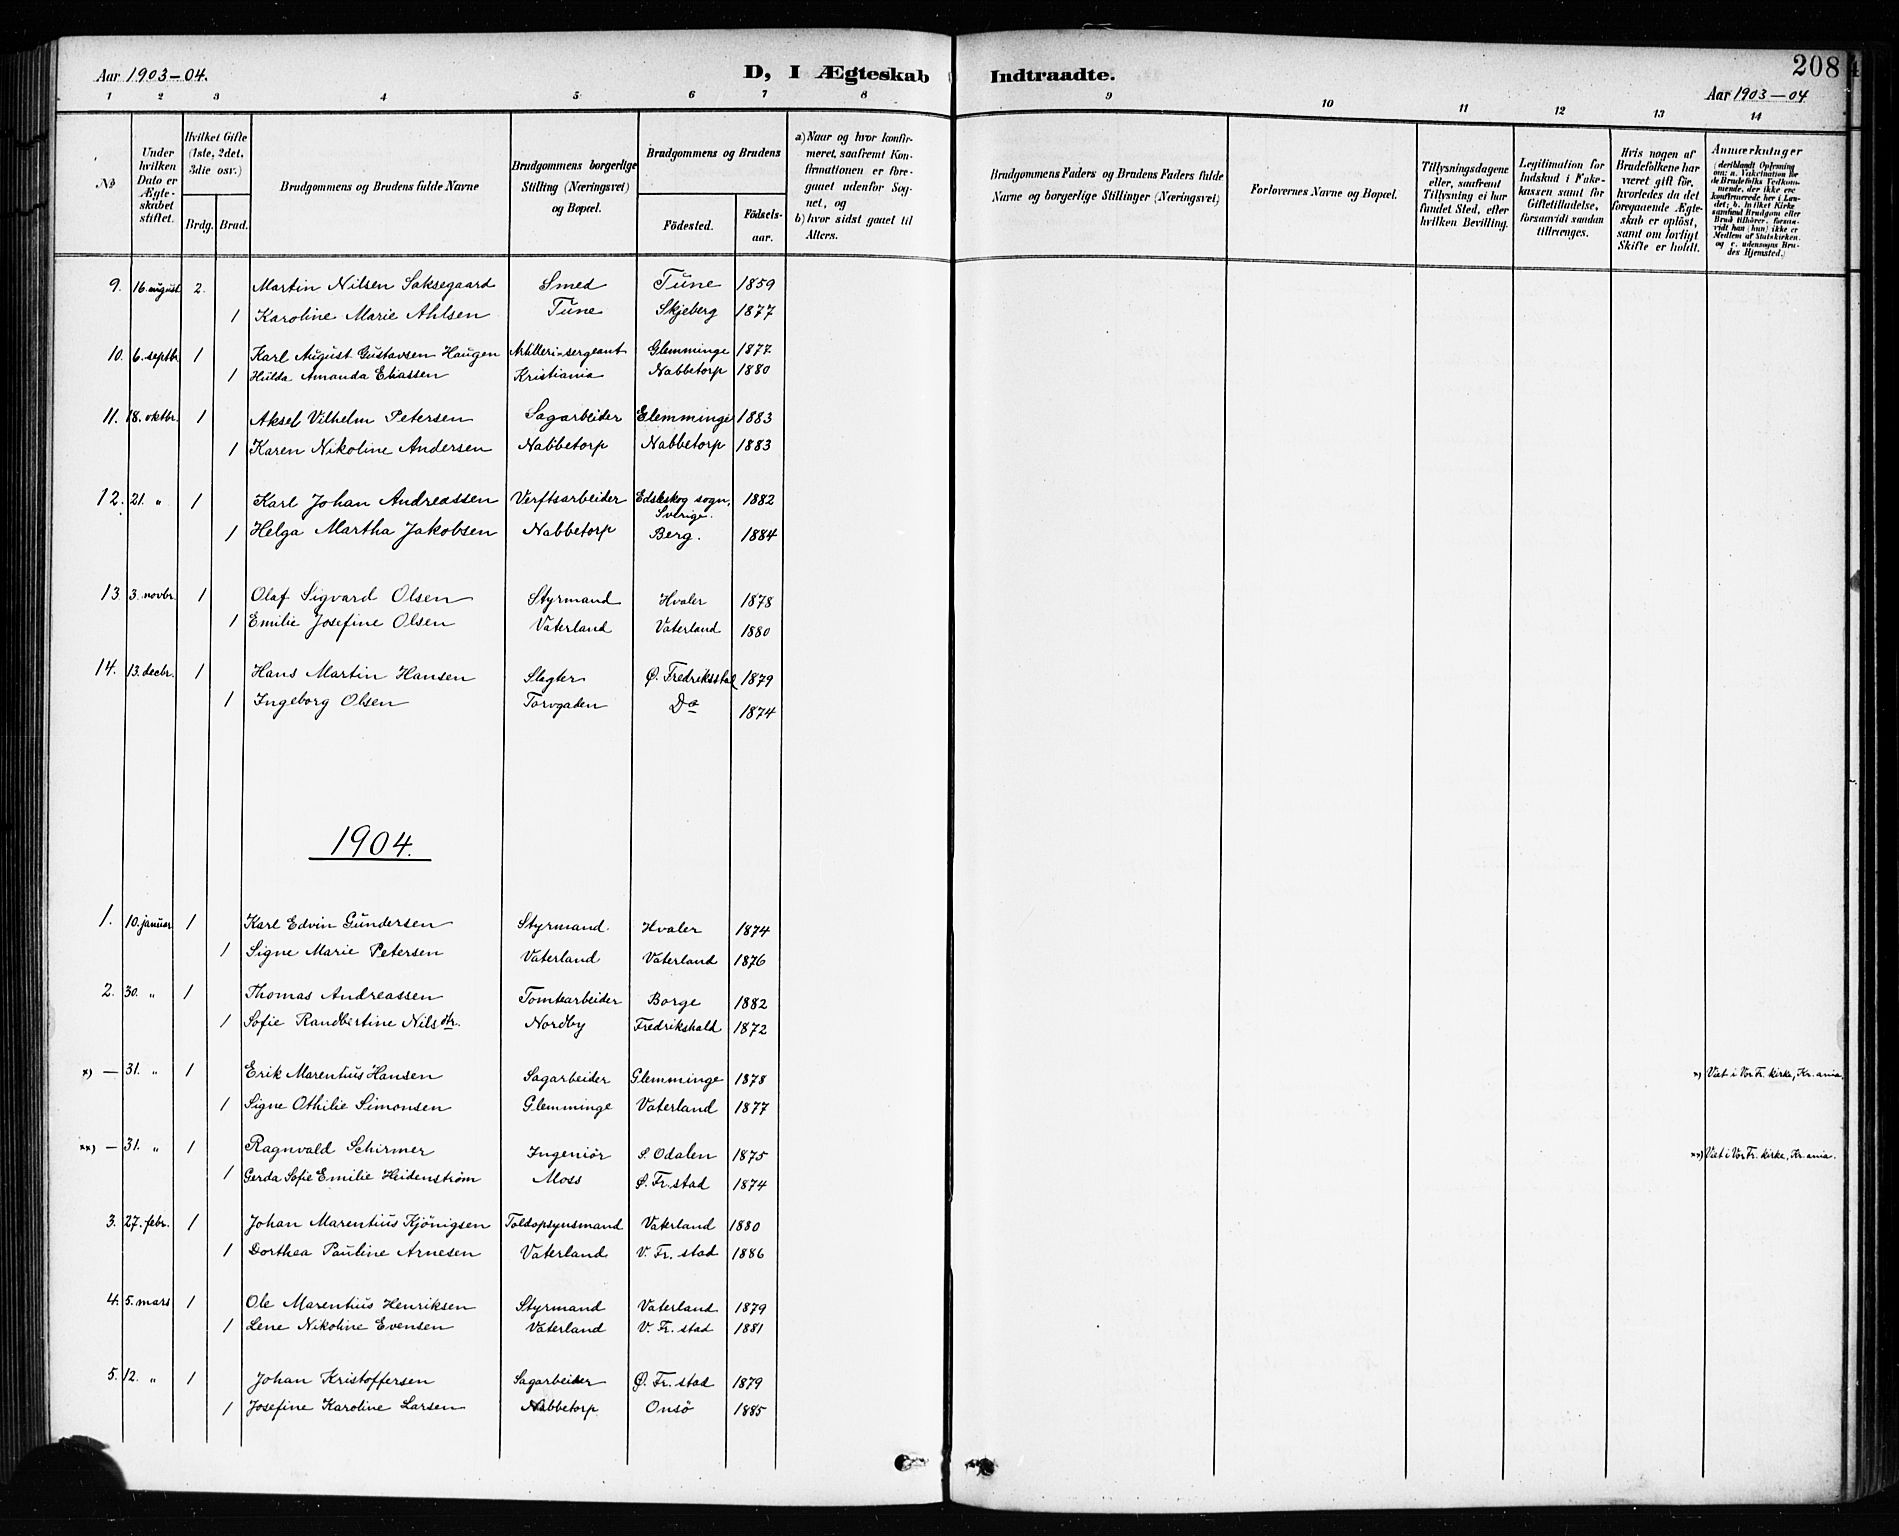 Aar 1903-04. D, I Ægteskab Indtraadte. 208
Aar 1903-04
1 2 3 4 5 6 7 8 9 10 11 12 13 14
No
Under hvilken Dato er Ægteskabet stiftet.
Hvilket Gifte (1ste, 2det, 3die osv.)
Brdg. Brud.
Brudgommens og Brudens fulde Navne
Brudgommens borgerlige Stilling (Næringsvei) og Bopæl.
Brudgommens og Brudens
Födested.
Födselsaar.
a) Naar og hvor konfirmeret, saafremt Konfirmationen er foregaaet udenfor Sognet, og
b) hvor sidst gaaet til Alters.
Brudgommens Faders og Brudens Faders fulde Navne og borgerlige Stillinger (Næringsvei)
Forlovernes Navne og Bopæl.
Tillysningsdagene eller, saafremt Tillysning ei har fundet Sted, efter hvilken Bevilling.
Legitimation for Indskud i Enkekassen samt for Giftetilladelse, forsaavidt saadan tiltrænges.
Hvis nogen af Brudefolkene har været gift för, hvorledes da det foregaaende Ægteskab er oplöst, samt om lovligt Skifte er holdt.
Anmærkninger
(deriblandt Oplysning om: a. Vakcination for de Brudefolks Vedkommende, der ikke ere konfirmerede her i Landet; b. hvilket Kirkesamfund Brudgom eller Brud tilhører, forsaavidt han (hun) ikke er Medlem af Statskirken, og c. udensogns Brudes Hjemsted.)
9. 16. august 2. Martin Nilsen Saksegaard Smed Tune 1859
1 Karoline Marie Ahlsen Tune Skjeberg 1877
10. 6. septbr 1 Karl August Gustavsen Haugen Artilleri-sergeant Glemminge 1877.
1 Hulda Amanda Eliassen Kristiania Nabbetorp 1880
11. 18. oktbr. 1 Aksel Vilhelm Petersen Sagarbeider Glemminge 1883
1 Karen Nikoline Andersen Nabbetorp Nabbetorp 1883
12. 21. " 1 Karl Johan Andreassen Verftsarbeider Edsleskog sogn, 1882
Sverige.
1 Helga Martha Jakobsen Nabbetorp Berg. 1884
13. 3. novbr. 1 Olaf Sigvard Olsen Styrmand Hvaler 1878
1 Emilie Josefine Olsen Vaterland Vaterland 1880
14. 13. decbr. 1 Hans Martin Hansen Slagter Ø. Fredriksstad 1879
1 Ingeborg Olsen Torvgaden Do 1874
1904.
1. 10. januar 1 Karl Edvin Gundersen Styrmand Hvaler 1874
1 Signe Marie Petersen Vaterland Vaterland 1876
2. 30. " 1 Thomas Andreassen Tomtearbeider Borge 1882
1 Sofie Randbertine Nilsdtr. Nordby Fredrikshald 1872
x) — 31. " 1 Erik Marentius Hansen Sagarbeider Glemminge 1878 x) Viet i Vor Fr. kirke, Kr.ania.
1 Signe Othilie Simonsen Glemminge Vaterland 1877
xx) — 31. " 1 Ragnvald Schirmer Ingeniør S. Odalen 1875 xx) Viet i Vor Fr. kirke, Kr.ania.
1 Gerda Sofie Emilie Heidenstrøm Moss Ø. Fr.stad 1874
3. 27. febr. 1 Johan Marentius Kjönigsen Toldopsynsmand Vaterland 1880
1 Dorthea Pauline Arnesen Vaterland V. Fr. stad 1886
4. 5. mars 1 Ole Marentius Henriksen Styrmand Vaterland 1879
1 Lene Nikoline Evensen Vaterland V. Fr. stad 1881
5. 12. " 1 Johan Kristoffersen Sagarbeider Ø. Fr. stad 1879
1 Josefine Karoline Larsen Nabbetorp Onsö 1885